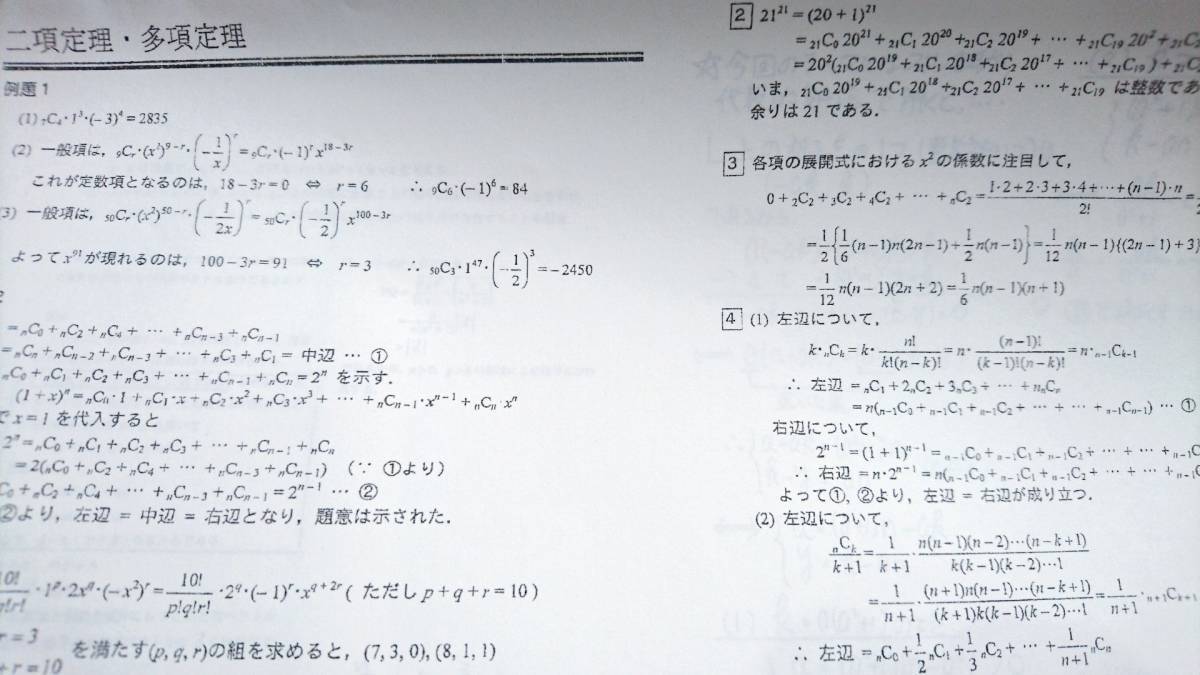 二項定理・多項定理
例題1
(1) ₇C₄・1³・(-3)⁴=2835
(2) 一般項は, ₉Cᵣ・(x²)⁹⁻ʳ・(-1/x)ʳ=₉Cᵣ・(-1)ʳx¹⁸⁻³ʳ
これが定数項となるのは, 18-3r=0 ⇔ r=6 ∴ ₉C₆・(-1)⁶=84
3) 一般項は, ₅₀Cᵣ・(x²)⁵⁰⁻ʳ・(-1/2x)ʳ=₅₀Cᵣ・(-1/2)ʳx¹⁰⁰⁻³ʳ
よってx⁹¹が現れるのは, 100-3r=91 ⇔ r=3 ∴ ₅₀C₃・1⁴⁷・(-1/2)³=-2450
2
=ₙC₀+ₙC₂+ₙC₄+ … +ₙCₙ₋₃+ₙCₙ₋₁
=ₙCₙ+ₙCₙ₋₂+ₙCₙ₋₃+ … +ₙC₃+ₙC₁= 中辺 … ①
ₙC₀+ₙC₁+ₙC₂+ₙC₃+ … +ₙCₙ₋₁+ₙCₙ=2ⁿ を示す.
(1+x)ⁿ=ₙC₀・1+ₙC₁・x+ₙC₂・x²+ₙC₃・x³+ … +ₙCₙ₋₁・xⁿ⁻¹+ₙCₙ・xⁿ
でx=1を代入すると
2ⁿ=ₙC₀+ₙC₁+ₙC₂+ₙC₃+ … +ₙCₙ₋₁+ₙCₙ
=2(ₙC₀+ₙC₂+ₙC₄+ … +ₙCₙ₋₃+ₙCₙ₋₁) (∵ ①より)
C₀+ₙC₂+ₙC₄+ … +ₙCₙ₋₃+ₙCₙ₋₁=2ⁿ⁻¹ … ②
②より, 左辺 = 中辺 = 右辺となり, 題意は示された.
10!/q!r!・1ᵖ・2x^q・(-x²)ʳ=10!/p!q!r!・2^q・(-1)ʳ・x^(q+2r) (ただしp+q+r=10)
r=3
+r=10 を満たす(p, q, r)の組を求めると, (7, 3, 0), (8, 1, 1)
2 21²¹=(20+1)²¹
=₂₁C₀ 20²¹+₂₁C₁ 20²⁰+₂₁C₂ 20¹⁹+ … +₂₁C₁₉ 20²+₂₁C₂
=20²(₂₁C₀ 20¹⁹+₂₁C₁ 20¹⁸+₂₁C₂ 20¹⁷+ … +₂₁C₁₉)+₂₁C₂
いま, ₂₁C₀ 20¹⁹+₂₁C₁ 20¹⁸+₂₁C₂ 20¹⁷+ … +₂₁C₁₉ は整数であ
余りは21である.
3 各項の展開式におけるx²の係数に注目して,
0+₂C₂+₃C₂+₄C₂+ … +ₙC₂=1・2+2・3+3・4+…+(n-1)・n/2!=
=1/2{1/6(n-1)n(2n-1)+1/2n(n-1)}=1/12n(n-1){(2n-1)+3}
=1/12n(n-1)(2n+2)=1/6n(n-1)(n+1)
4 (1) 左辺について,
k・ₙCₖ=k・n!/k!(n-k)!=n・(n-1)!/(k-1)!(n-k)!=n・ₙ₋₁Cₖ₋₁
∴ 左辺 =ₙC₁+2ₙC₂+3ₙC₃+ … +nₙCₙ
=n(ₙ₋₁C₀+ₙ₋₁C₁+ₙ₋₁C₂+ … + … +ₙ₋₁Cₙ₋₁) … ①
右辺について,
2ⁿ⁻¹=(1+1)ⁿ⁻¹=ₙ₋₁C₀+ₙ₋₁C₁+ₙ₋₁C₂+ … + … +ₙ₋₁C
∴ 右辺=n・2ⁿ⁻¹=n(ₙ₋₁C₀+ₙ₋₁C₁+ₙ₋₁C₂+ … + … +ₙ₋₁
よって①, ②より, 左辺 = 右辺が成り立つ.
(2) 左辺について,
ₙCₖ/k+1=1/k+1・n(n-1)(n-2)…(n-k+1)/k(k-1)(k-2)…1
=1/n+1・(n+1)n(n-1)…(n-k+1)/(k+1)k(k-1)(k-2)…1=1/n+1・ₙ₊₁Cₖ₊₁
∴ 左辺 =ₙC₀+1/2ₙC₁+1/3ₙC₂+ … +1/n+1ₙCₙ